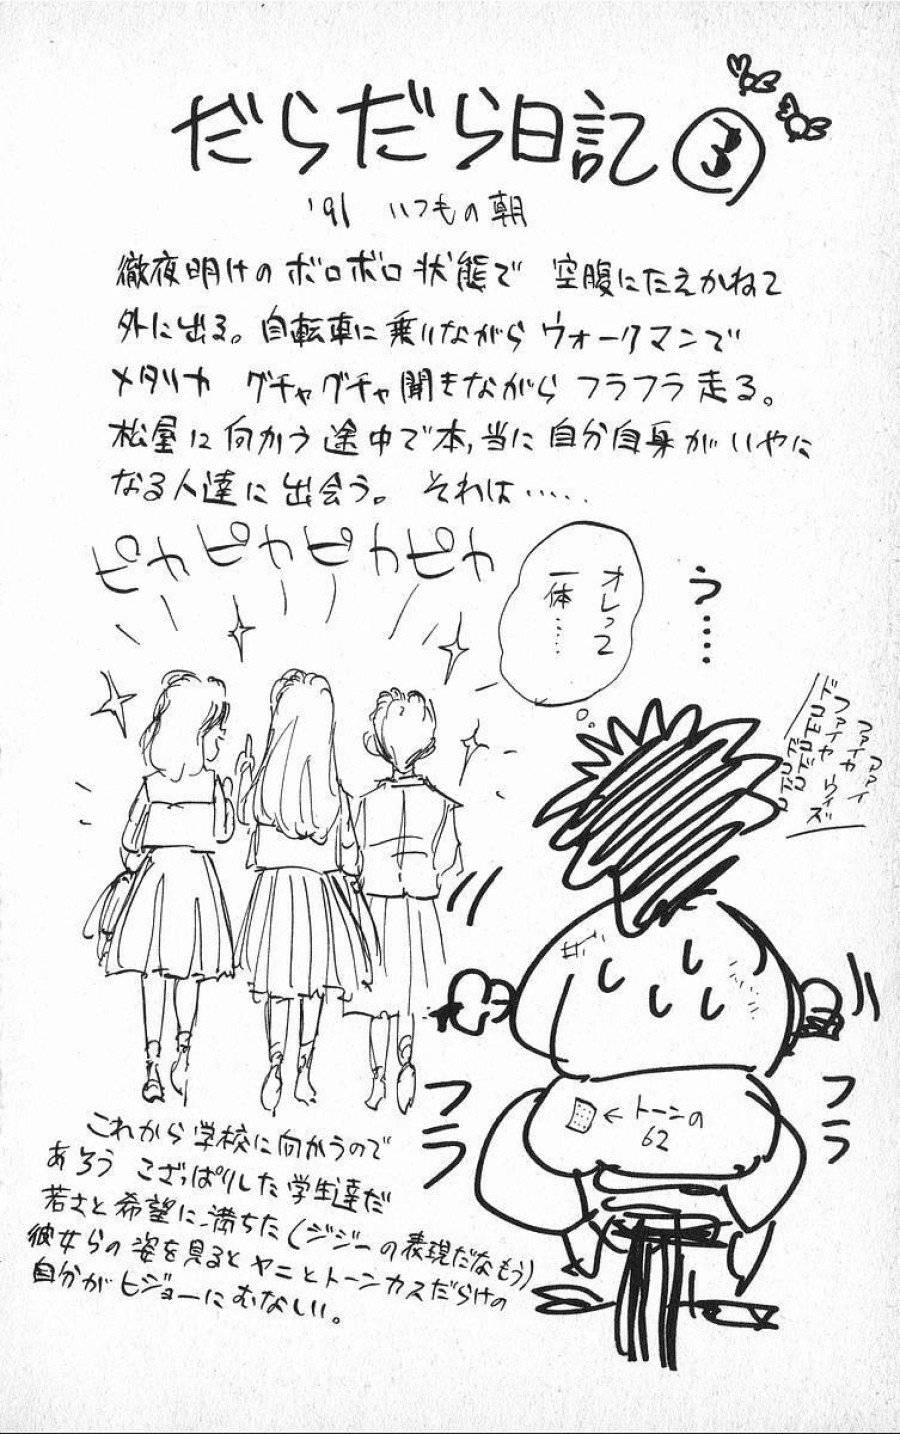 だらだら日記③
'91 いつもの朝
徹夜明けのボロボロ状態で 空腹にたえかねて
外に出る。自転車に乗りながらウォークマンで
メタリカ グチャグチャ聞きながらフラフラ走る。
松屋に向かう途中で本当に自分自身がいやに
なる人達に出会う。 それは……
ピカピカピカピカ
オレって
一体……
う……
ファイ
ファイヤ
ファイヤ ウィズ
ドロドロ
トーンの
62
フラ
フラ
これから学校に向かうので
あろう こざっぱりした学生達だ
若さと希望に満ちた(ジジーの表現だなもう)
彼女らの姿を見るとヤニとトーンカスだらけの
自分がヒジョーにむなしい。